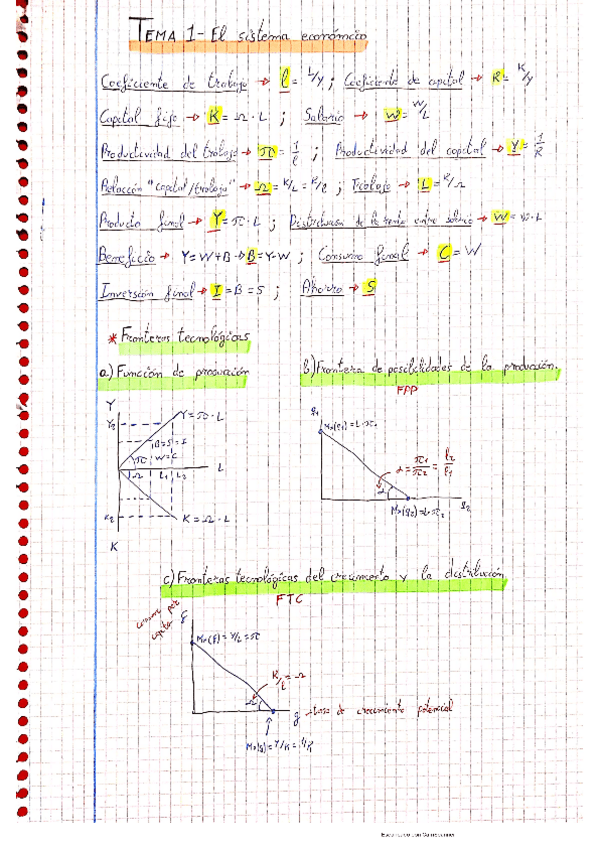 TEMA 1- El sistema económico
Coeficiente de trabajo → l = L/Y ; Coeficiente de capital → K = K/Y
Capital fijo → K = Ω · L ; Salario → w = W/L
Productividad del trabajo → π = 1/l ; Productividad del capital → Y = 1/K
Relación "capital/trabajo" → Ω = K/L = K/l ; Trabajo → L = K/Ω
Producto final → Y = π · L ; Distribución de la renta entre salario → W = w · L
Beneficio → Y = W + B → B = Y - W ; Consumo final → C = W
Inversión final → I = B = S ; Ahorro → S
* Fronteras tecnológicas
a) Función de producción
b) Frontera de posibilidades de la producción.
FPP
Y
Y2
Y = π · L
B = S = I
W = C
π
Ω
L1
L2
L
K2
K = Ω · L
K
q1
Mx(q1) = L · π1
α = π1/π2 = l2/l1
α
Mx(q2) = L · π2
q2
c) Fronteras tecnológicas del crecimiento y la distribución
FTC
consumo per capita
Mx(f) = Y/L = π
K/l = Ω
Ω
g → tasa de crecimiento potencial
Mx(g) = Y/K = 1/K